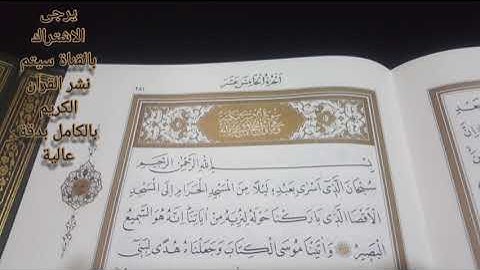 يرجى
الاشتراك
بالقناة سيتم
نشر القرآن
الكريم
بالكامل بدقة
عالية
الجزء الخامس عشر
٢٨١
بسم الله الرحمن الرحيم
سبحان الذي اسرى بعبده ليلا من المسجد الحرام الى المسجد
الاقصا الذي باركنا حوله لنريه من اياتنا انه هو السميع
البصير واتينا موسى الكتاب وجعلناه هدى لبني